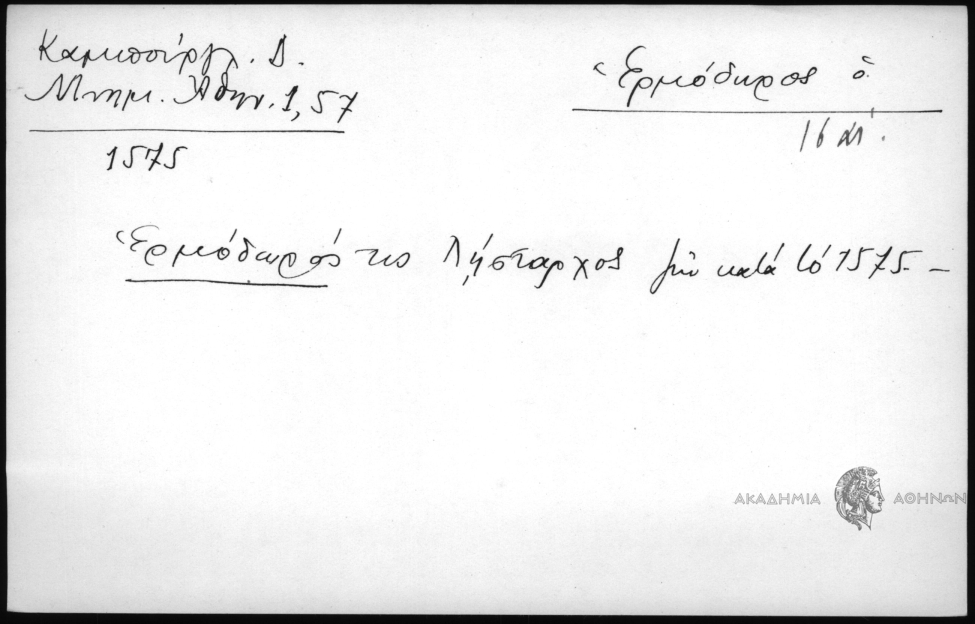 Καμπούργλ. Δ.
Μνημ. Ἀθην. 1, 57
1575
Ἑρμόδωρος ὁ
16 αἰ.
Ἑρμόδωρός τις Λήσταρχος ζῇ κατὰ τὸ 1575 –
ΑΚΑΔΗΜΙΑ ΑΘΗΝΩΝ